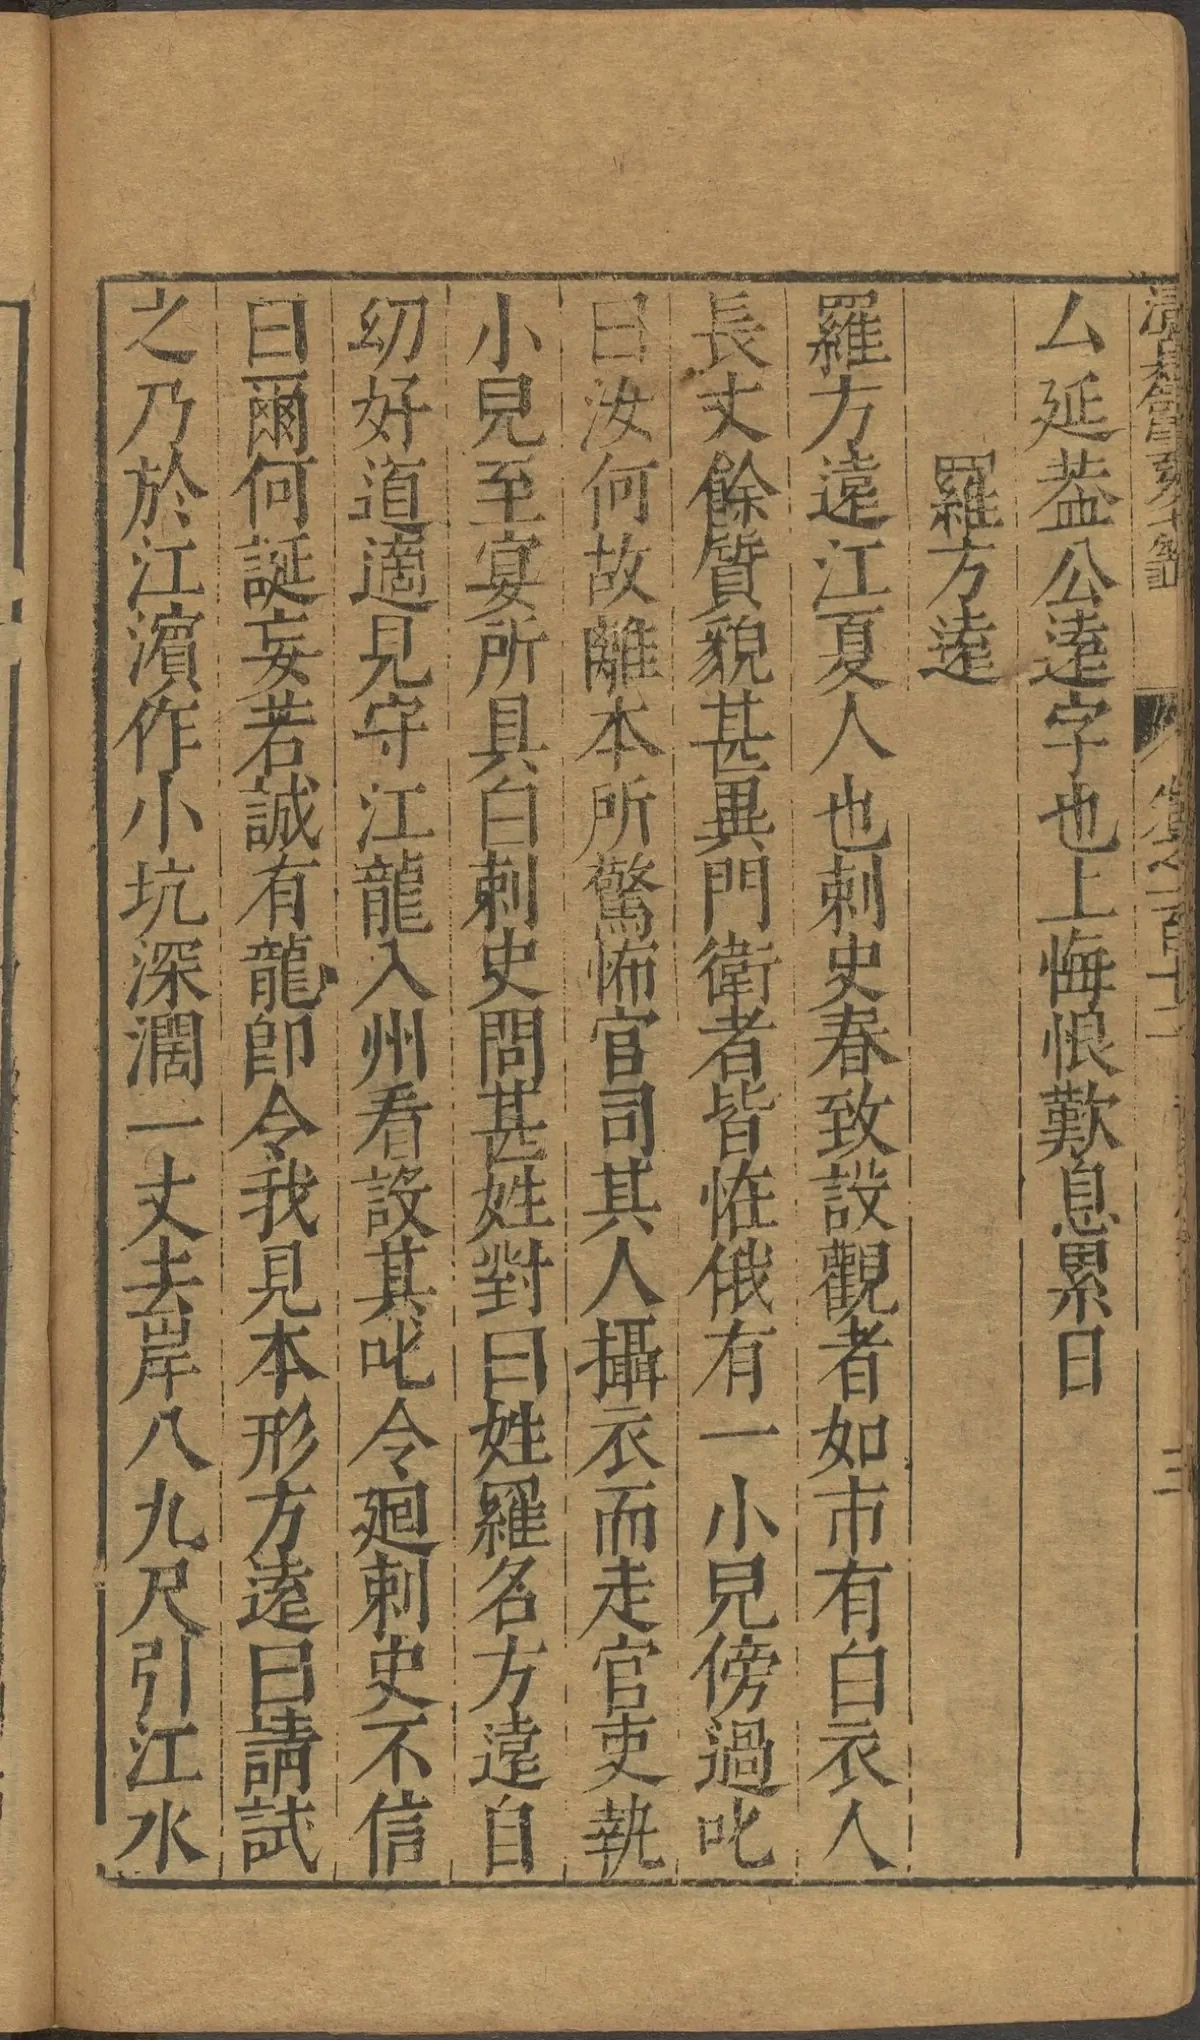 厶延葢公遠字也上悔恨歎息累日
羅方遠
羅方遠江夏人也刺史春致設觀者如市有白衣人
長丈餘質貌甚異門衛者皆恠俄有一小兒傍過叱
曰汝何故離本所驚怖官司其人攝衣而走官吏執
小兒至宴所具白刺史問甚姓對曰姓羅名方遠自
幼好道適見守江龍入州看設某叱令廻刺史不信
曰爾何誕妄若誠有龍卽令我見本形方遠曰請試
之乃於江濱作小坑深濶一丈去岸八九尺引江水